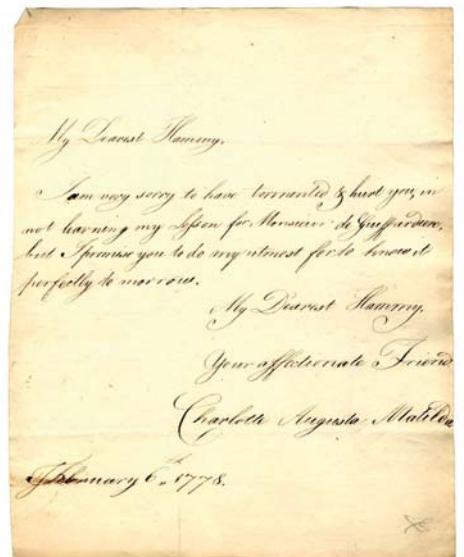 My Dearest Hammy.
I am very sorry to have tormented & hurt you, in
not learning my Lesson for Monsieur de Guiffardiere,
but I promise you to do my utmost for to know it
perfectly to morrow.
My Dearest Hammy.
Your affectionate Friend
Charlotte Augusta Matilda
February 6th 1778.